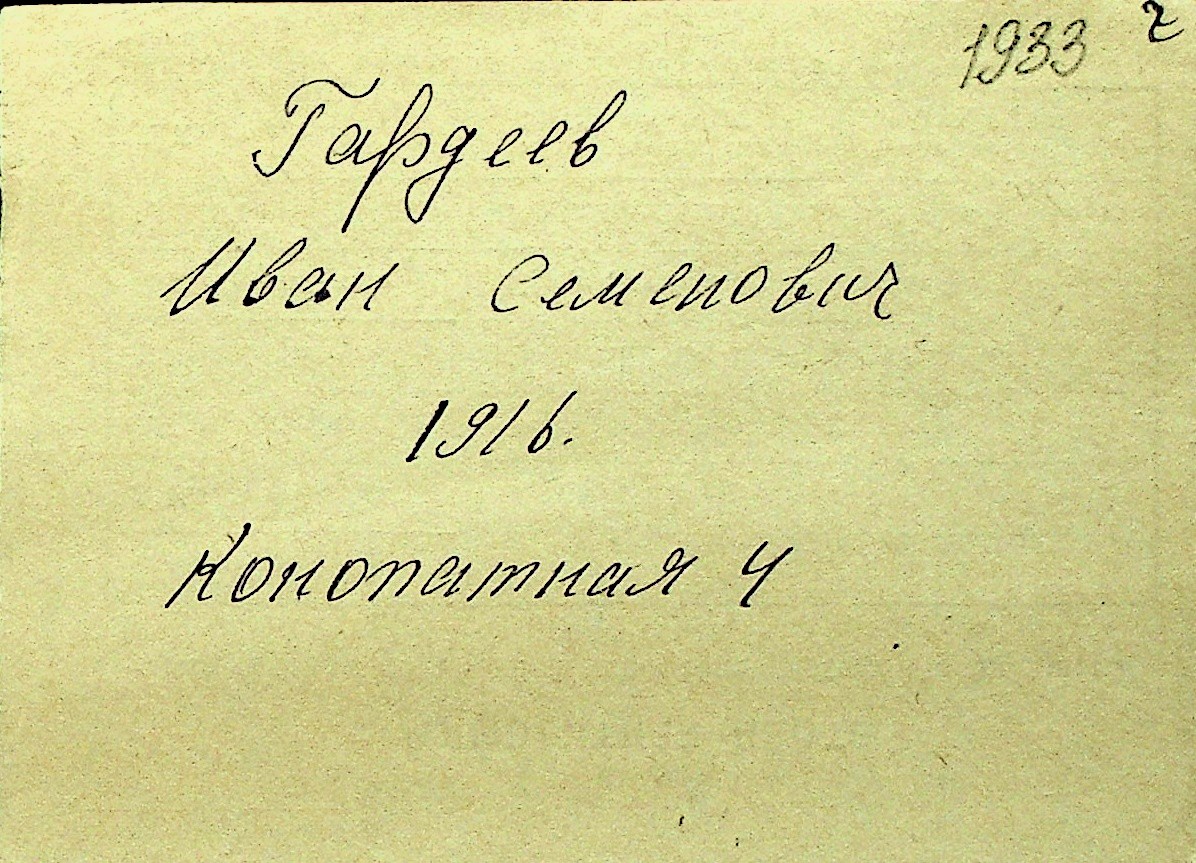 1933 2
Гардеев
Иван Семенович
1916.
Конопатная 4